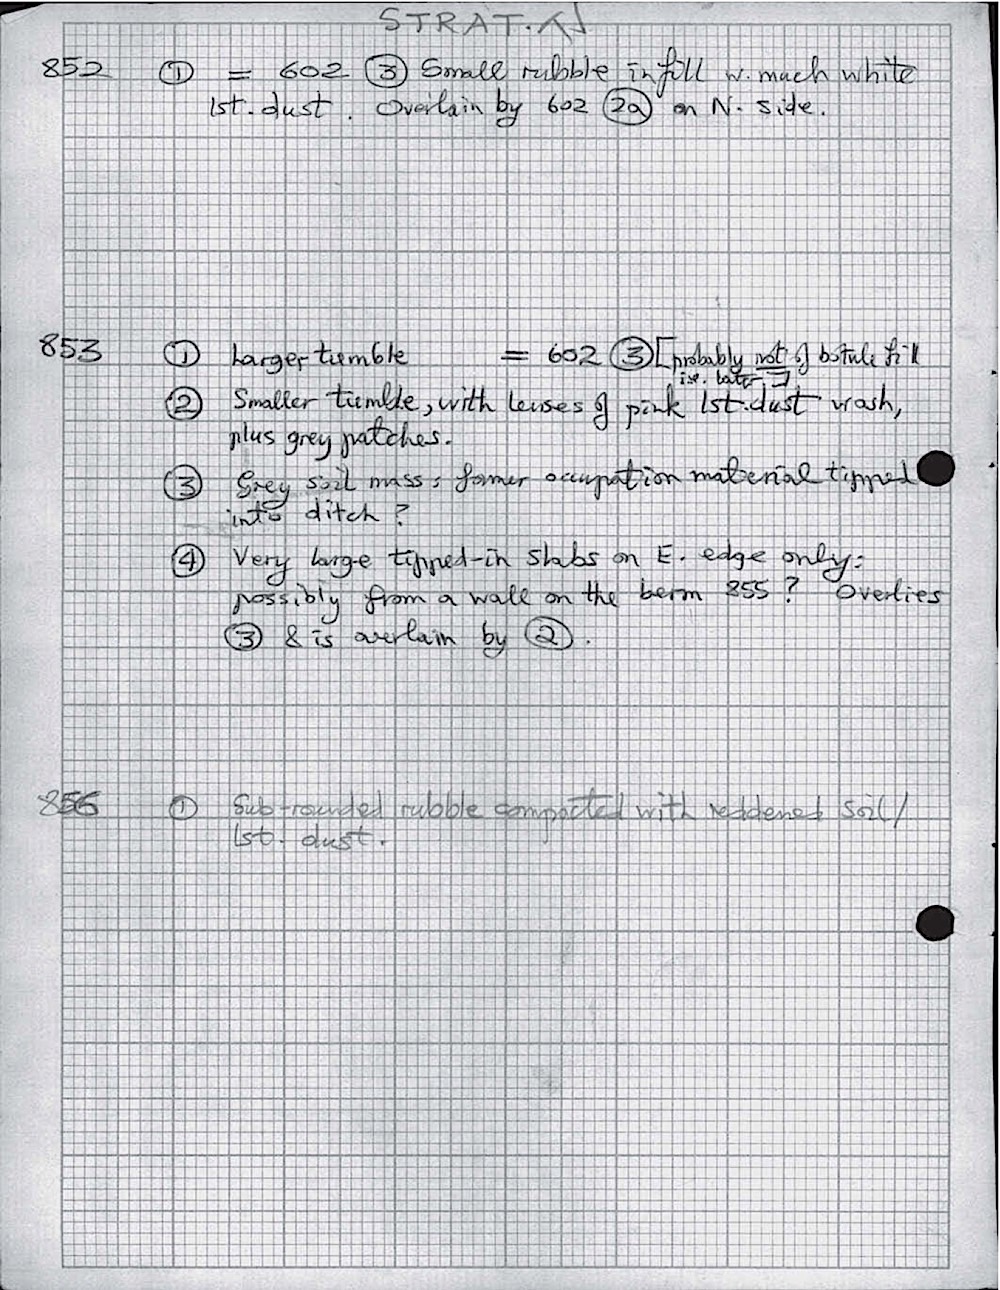 STRAT.
852 ① = 602 ③ Small rubble infill w. much white
lst. dust. Overlain by 602 2a on N. side.
853 ① Larger tumble = 602 ③ [probably not of fill
i.e. later]
② Smaller tumble, with lenses of pink lst. dust wash,
plus grey patches.
③ Grey soil mass: former occupation material tipped
into ditch?
④ Very large tipped-in slabs on E. edge only:
possibly from a wall on the berm 855? Overlies
③ & is overlain by ②.
856 ① Sub-rounded rubble compacted with reddened soil/
lst. dust.